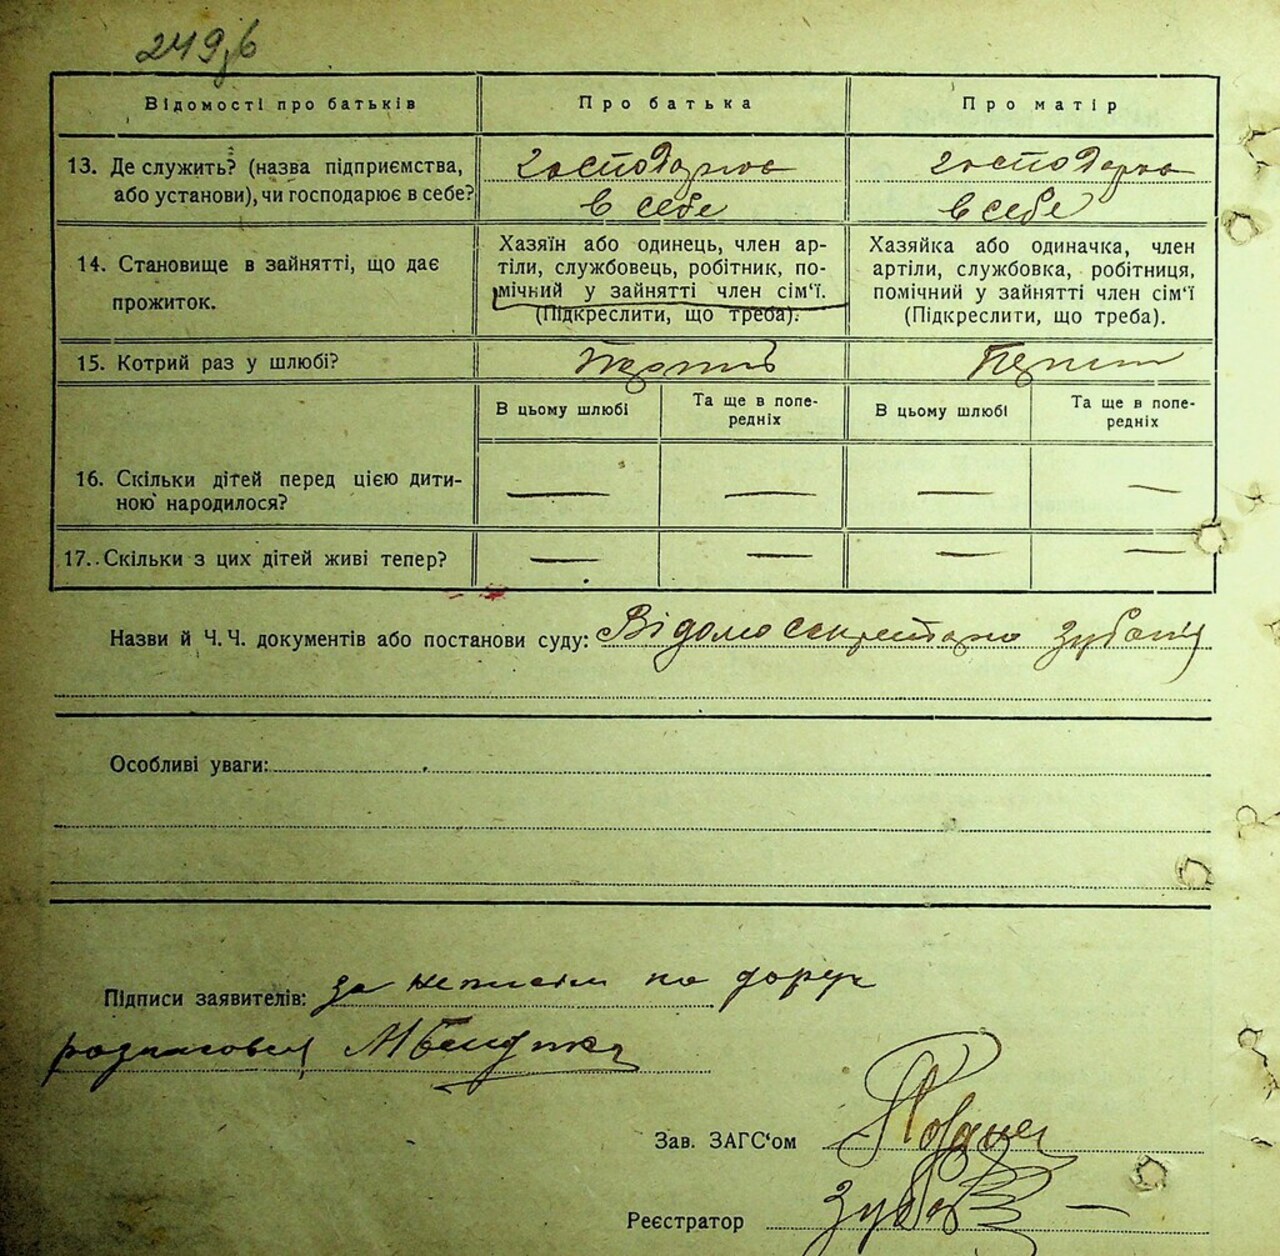 249зв
Відомості про батьків
Про батька
Про матір
13. Де служить? (назва підприємства,
або установи), чи господарює в себе?
господарює
в себе
господарює
в себе
14. Становище в зайнятті, що дає
прожиток.
Хазяїн або одинець, член ар-
тіли, службовець, робітник, по-
мічний у зайнятті член сім'ї.
(Підкреслити, що треба).
Хазяйка або одиначка, член
артіли, службовка, робітниця,
помічний у зайнятті член сім'ї
(Підкреслити, що треба).
15. Котрий раз у шлюбі?
Перший
В цьому шлюбі
Та ще в попе-
редніх
В цьому шлюбі
Та ще в попе-
редніх
16. Скільки дітей перед цією дити-
ною народилося?
— — — —
17. Скільки з цих дітей живі тепер?
— — — —
Назви й Ч.Ч. документів або постанови суду: Відомо секретарю
Особливі уваги:
Підписи заявителів: за неписім по доруч
розписовся
Зав. ЗАГС'ом
Реєстратор